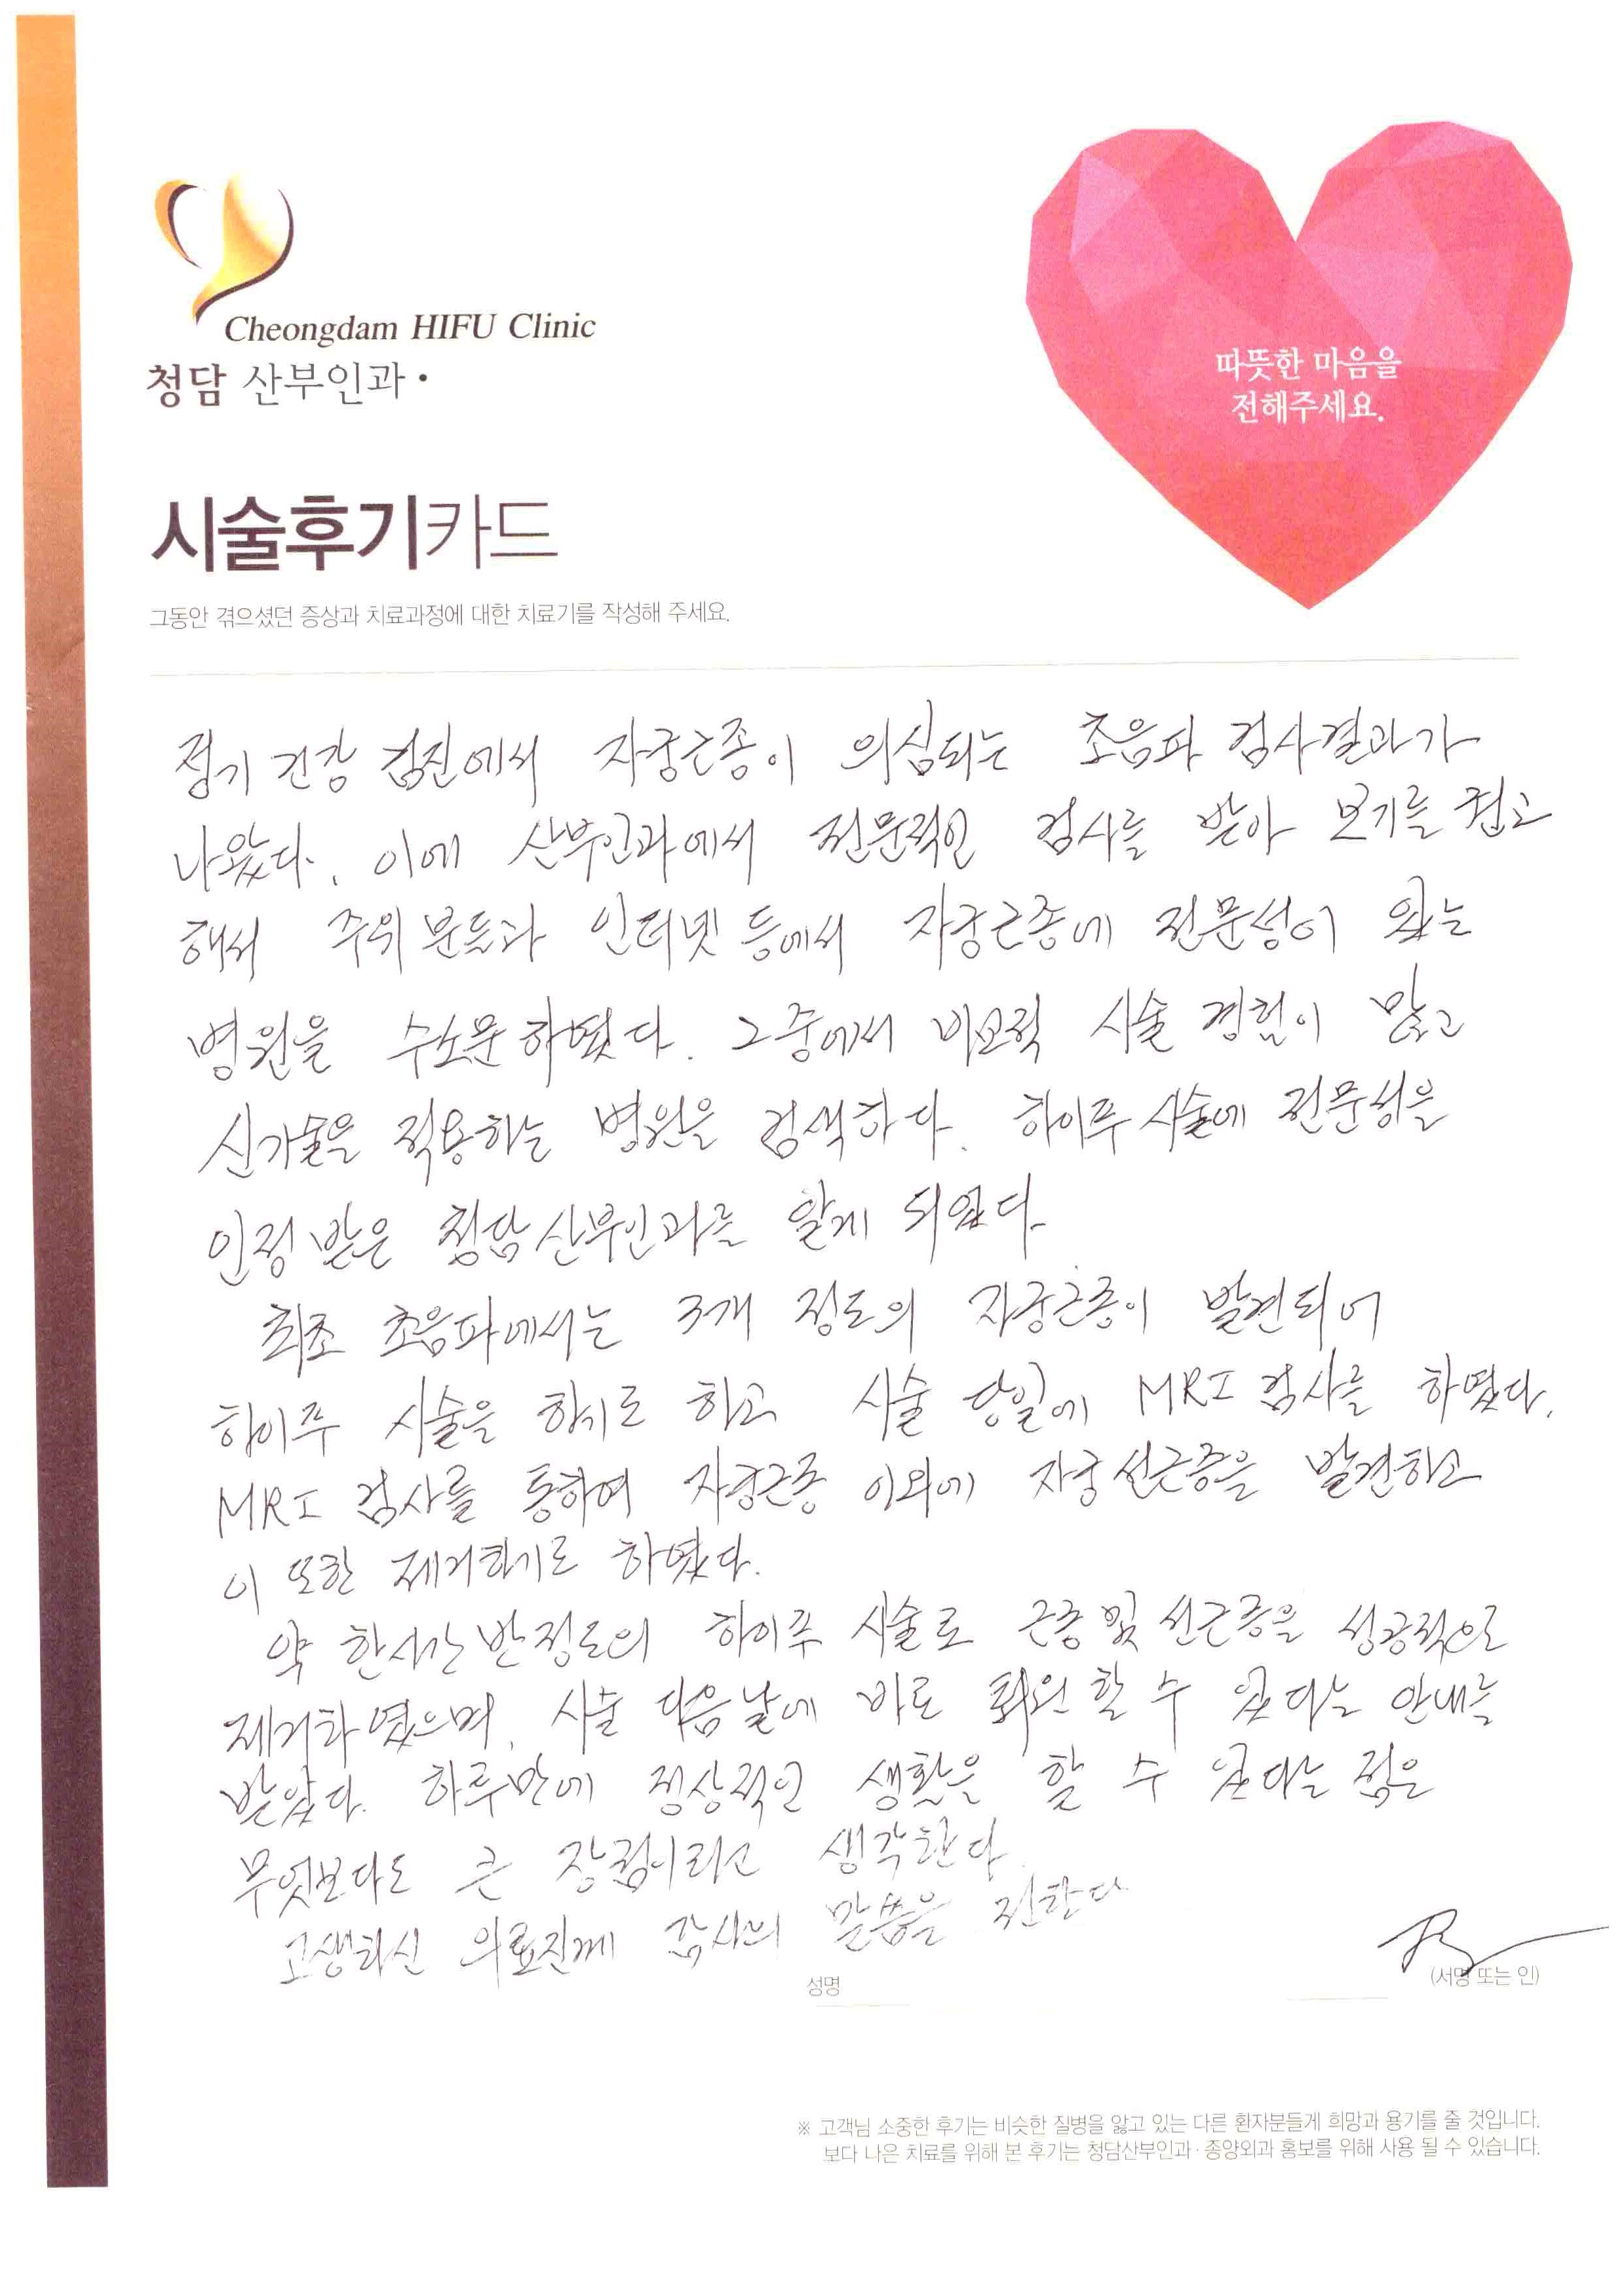 Cheongdam HIFU Clinic
청담 산부인과·
따뜻한 마음을
전해주세요.
시술후기카드
그동안 겪으셨던 증상과 치료과정에 대한 치료기를 작성해 주세요.
정기 건강 검진에서 자궁근종이 의심되는 초음파 검사결과가
나왔다. 이에 산부인과에서 전문적인 검사를 받아 보기를 권고
해서 주위 분들과 인터넷 등에서 자궁근종에 전문성이 있는
병원을 수소문하였다. 그중에서 비교적 시술 경험이 많고
신기술을 적용하는 병원을 검색하다. 하이푸 시술에 전문성을
인정 받은 청담산부인과를 알게 되었다.
최초 초음파에서는 3개 정도의 자궁근종이 발견되어
하이푸 시술을 하기로 하고 시술 당일에 MRI 검사를 하였다.
MRI 검사를 통하여 자궁근종 이외에 자궁선근증을 발견하고
이 또한 제거하기로 하였다.
약 한시간 반정도의 하이푸 시술로 근종 및 선근증을 성공적으로
제거하였으며, 시술 다음날에 바로 퇴원 할 수 있다는 안내를
받았다. 하루만에 정상적인 생활을 할 수 있다는 점은
무엇보다도 큰 장점이라고 생각한다.
고생하신 의료진께 감사의 말씀을 전한다
성명
(서명 또는 인)
※ 고객님 소중한 후기는 비슷한 질병을 앓고 있는 다른 환자분들게 희망과 용기를 줄 것입니다.
보다 나은 치료를 위해 본 후기는 청담산부인과·종양외과 홍보를 위해 사용 될 수 있습니다.